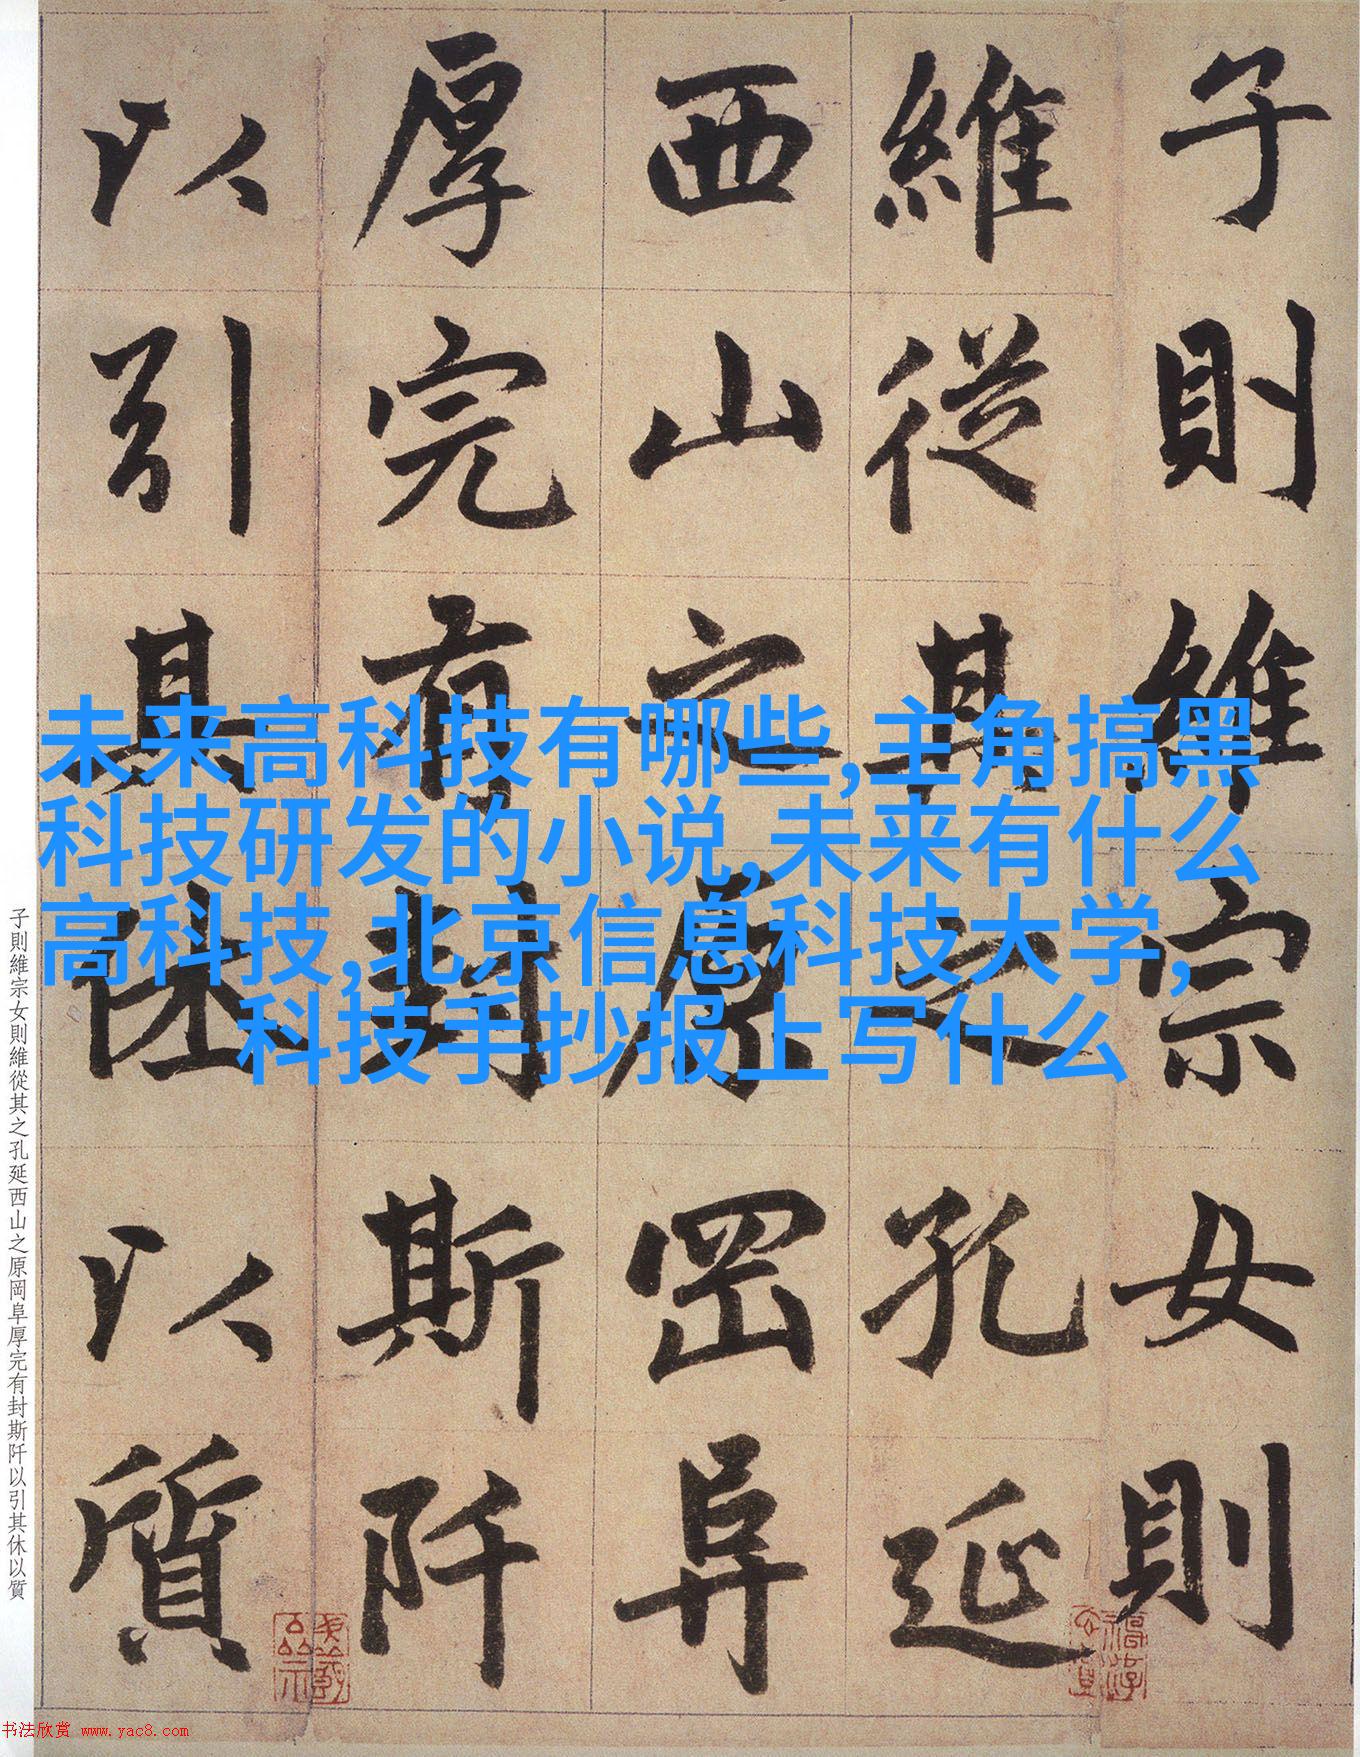 子則維宗女則
維從其之孔延
西山之原罔阜
厚完有封斯阡
以引其休以質
未来高科技有哪些,主角搞黑
科技研发的小说,未来有什么
高科技,北京信息科技大学,
科技手抄报上写什么
子則維宗女則維從其之孔延西山之原岡阜厚完有封斯阡以引其休以質
书法欣赏 www.yac8.com